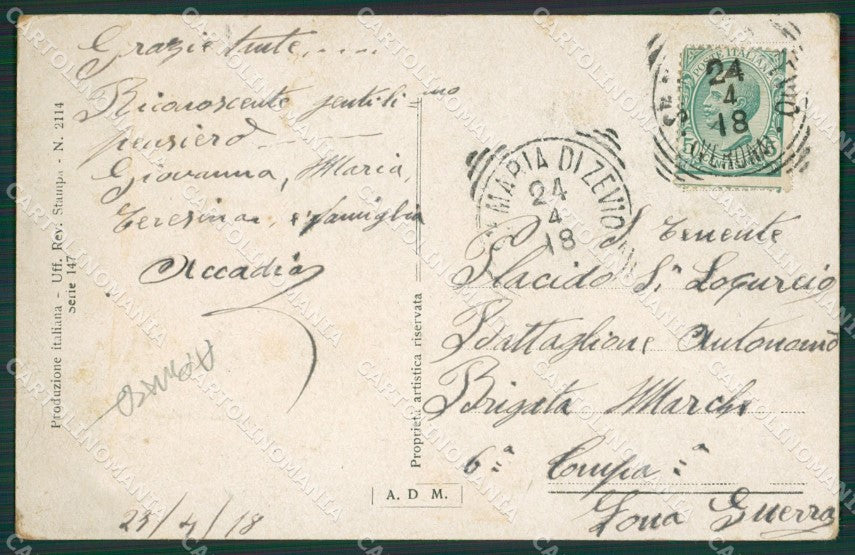 Grazie tante.....
Riconoscente gentili=mo
pensiero
Giovanna, Maria,
Teresina, e famiglia
Accadia
23/4/18
Produzione italiana - Uff. Rev. Stampa - N. 2114
Serie 147
Proprietà artistica riservata
A. D. M.
POSTE ITALIANE
24
4
18
(VERONA)
MARIA DI ZEVIO
24
4
18
Tenente
Placido
Battaglione Autonomo
Brigata Marche
6a Compa
Zona Guerra
CARTOLINOMANIA